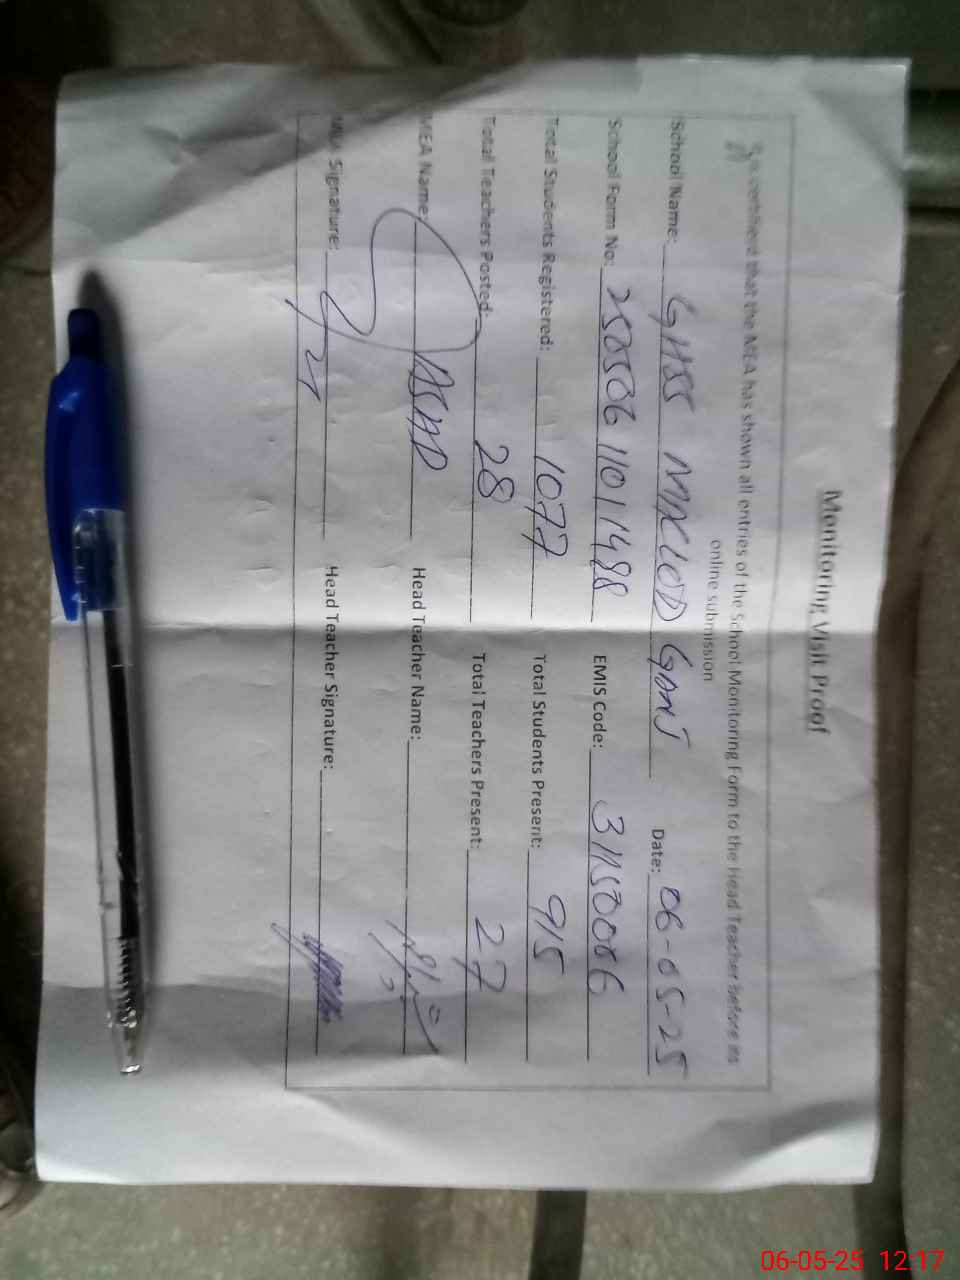 Monitoring Visit Proof
It is certified that the MEA has shown all entries of the School Monitoring Form to the Head Teacher before its
online submission
School Name: GHSS MACLOD GANJ Date: 06-05-25
School Form No: 250506 1101 1488 EMIS Code: 31150006
Total Students Registered: 1077 Total Students Present: 915
Total Teachers Posted: 28 Total Teachers Present: 27
MEA Name: ASAD Head Teacher Name:
MEA Signature: Head Teacher Signature:
06-05-25 12:17